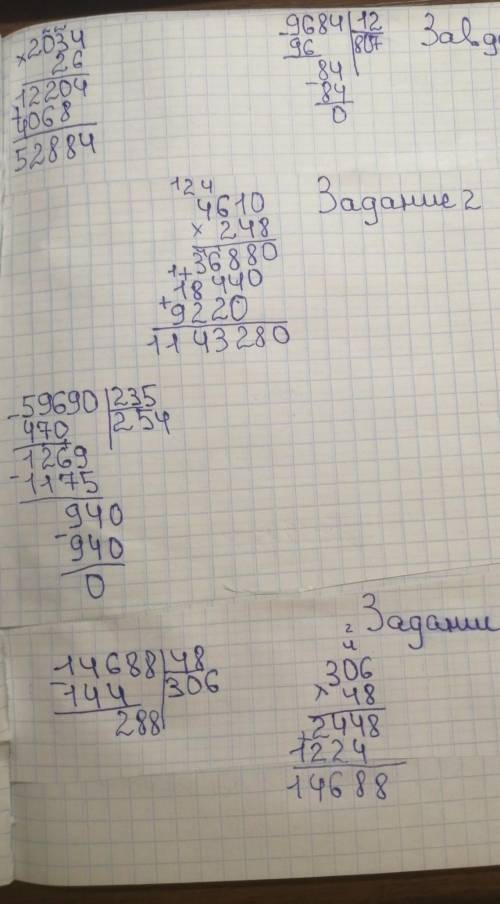 ×2034
26
12204
+4068
52884
-9684 | 12
96 807
84
-84
0
124
4610
× 248
36880
1+18440
+9220
1143280
Задание 2
-59690 | 235
470 254
1269
-1175
940
-940
0
Задани
-14688 | 48
144 306
288
2
4
306
× 48
2448
+1224
14688